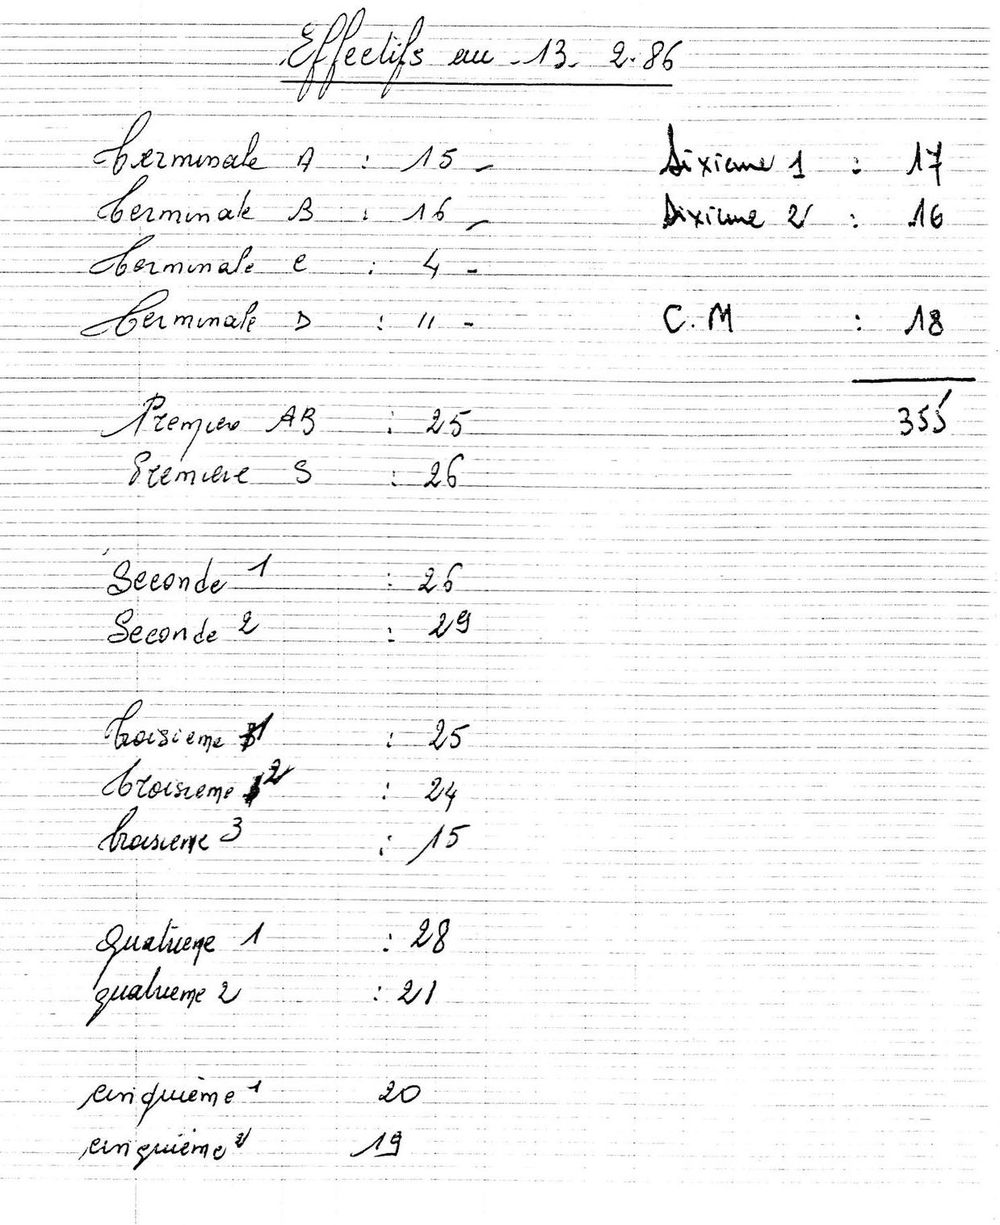 Effectifs au 13. 2.86
Terminale A : 15 -
Terminale B : 16 -
Terminale C : 4 -
Terminale D : 11 -
Premiere AB : 25
Premiere S : 26
Seconde 1 : 26
Seconde 2 : 29
troisieme 1 : 25
troisieme 2 : 24
troisieme 3 : 15
quatrieme 1 : 28
quatrieme 2 : 21
cinquième 1 20
cinquième 2 19
Sixieme 1 : 17
Sixieme 2 : 16
C.M : 18
355